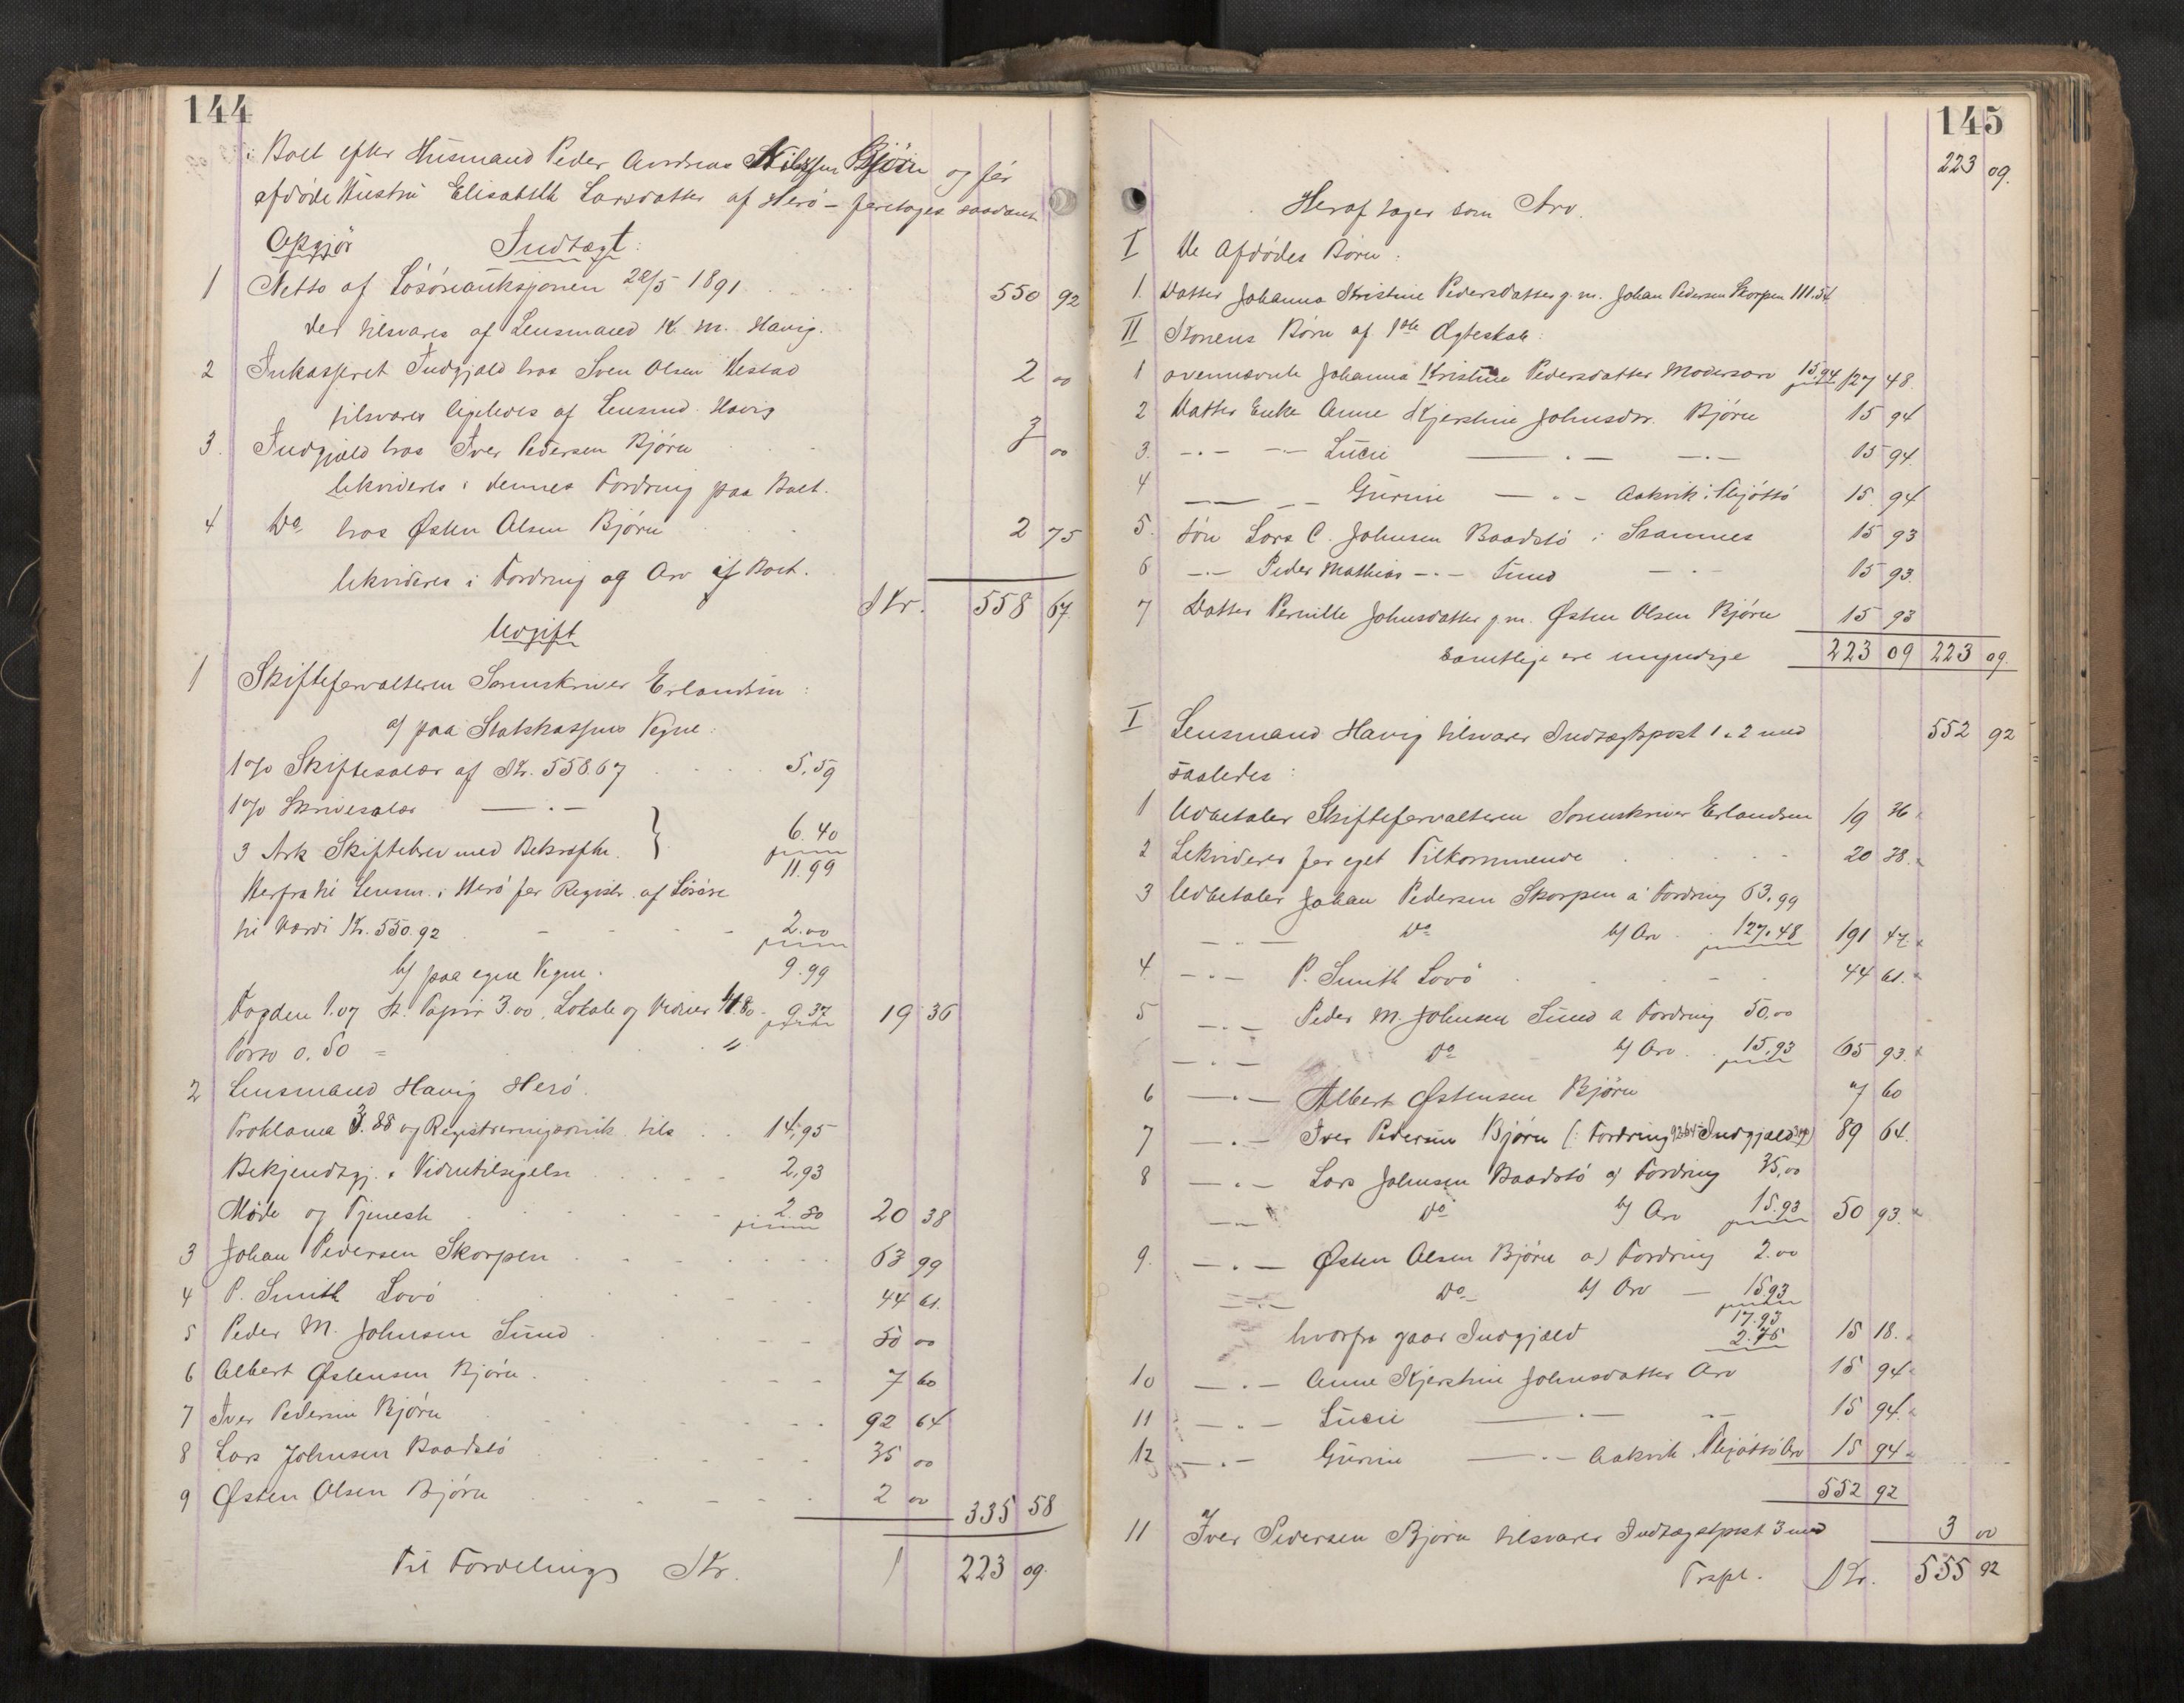 144
i Boet efter Husmand Peder Andreas Nilssen Bjørn og før
afdøde Hustru Elisabeth Larsdatter af Herø – foretages saadant
Opgjør Indtægt:
1 Netto af Løsøreauksjonen 28/5 1891 550 92
der tilsvares af Lensmand K. M. Havig.
2 Inkasseret Indgjæld hos Sven Olsen Hestad 2 00
tilsvares ligeledes af Lensmd. Havig
3. Indgjæld hos Iver Pedersen Bjørn 3 00
likvideres i dennes Fordring paa Boet.
4 Do hos Østen Olsen Bjørn 2 75
likvideres i Fordring og Arv af Boet.
Kr. 558 67
Udgift
1 Skifteforvalteren Sorenskriver Erlandsen:
a) paa Statskassens Vegne:
1% Skiftesalær af Kr. 558.67 5,59
1% Skrivesalær —.—
3 Ark Skiftebrev med Bekræftn. } 6.40
11.99
Herfra til Lensm. i Herø for Registr. af Løsøre
til Værdi Kr. 550.92 2.00
b) paa egne Vegne. 9.99
Fogden 1.07 St. Papir 3.00, Lokale og Vidner 4.80 9.37 19 36
Porto 0.50 = "
2 Lensmand Havig Herø.
Proklama 3.88 og Registreringsvink. tils 14,95
Bekjendtgj. & Vidnetilsigelse 2,93
Møde og Tjeneste 2.50 20 38
3 Johan Pedersen Skorpen 63 99
4 P. Smith Lovö 44 61.
5 Peder M. Johnsen Sund 50 00
6 Albert Østensen Bjørn. 7 60
7 Iver Pedersen Bjørn 92 64
8 Lars Johnsen Baadstø 35 00
9 Østen Olsen Bjørn 2 00 335 58
Til Fordeling Kr. 223 09.
145
223 09.
Heraf tages som Arv.
I De Afdødes Børn:
1. Datter Johanna Kristine Pedersdatter g. m. Johan Pedersen Skorpen 111.54
II Konens Børn af 1ste Ægteskab:
1 ovennævnte Johanna Kristine Pedersdatter Modersarv 15,94 127 48.
2 Datter Enke Anne Kjerstine Johnsdtr. Bjørn 15 94
3. —.— —.— Lucie —.— —.— 15 94.
4 —.— —.— Gurine —.— Aakvik i Tjøttø 15. 94
5. Søn Lars C. Johnsen Baadstø i Stamnes 15 93
6 —.— Peder Mathias —.— Sund —.— 15 93.
7 Datter Pernille Johnsdatter g. m. Østen Olsen Bjørn 15 93
Samtlige ere myndige 223 09 223 09.
I Lensmand Havig tilsvarer Indtægtspost 1 & 2 med 552 92
saaledes:
1 Udbetaler Skifteforvalteren Sorenskriver Erlandsen 19 36
2 Likvideres for eget Tilkommende 20 38.
3 Udbetaler Johan Pedersen Skorpen a Fordring 63,99
—.— Do b) Arv 127.48 191 47.
4. —.— P. Smith Lovö 44 61.
5 —.— Peder M. Johnsen Sund a Fordring 50,00
—.— Do b) Arv 15,93 65 93.
6 —.— Albert Østensen Bjørn 7 60
7 —.— Iver Pedersen Bjørn (: Fordring 92.64 Indgjæld 3.00) 89 64.
8 —.— Lars Johnsen Baadstø a) Fordring 35,00
—.— Do b) Arv 15.93 50 93.
9. —.— Østen Olsen Bjørn a) Fordring 2.00
—.— Do b) Arv — 15.93
17.93
hvorfra gaar Indgjæld 2.75 15 18.
10 —.— Anne Kjerstine Johnsdatter Arv 15 94
11 —.— Lucie —.— —.— 15 94.
12 —.— Gurine —.— Aakvik Tjøttø Arv 15 94
552 92
11 Iver Pedersen Bjørn tilsvarer Indtægtspost 3 med 3 00
Trspt. Kr. 555 92